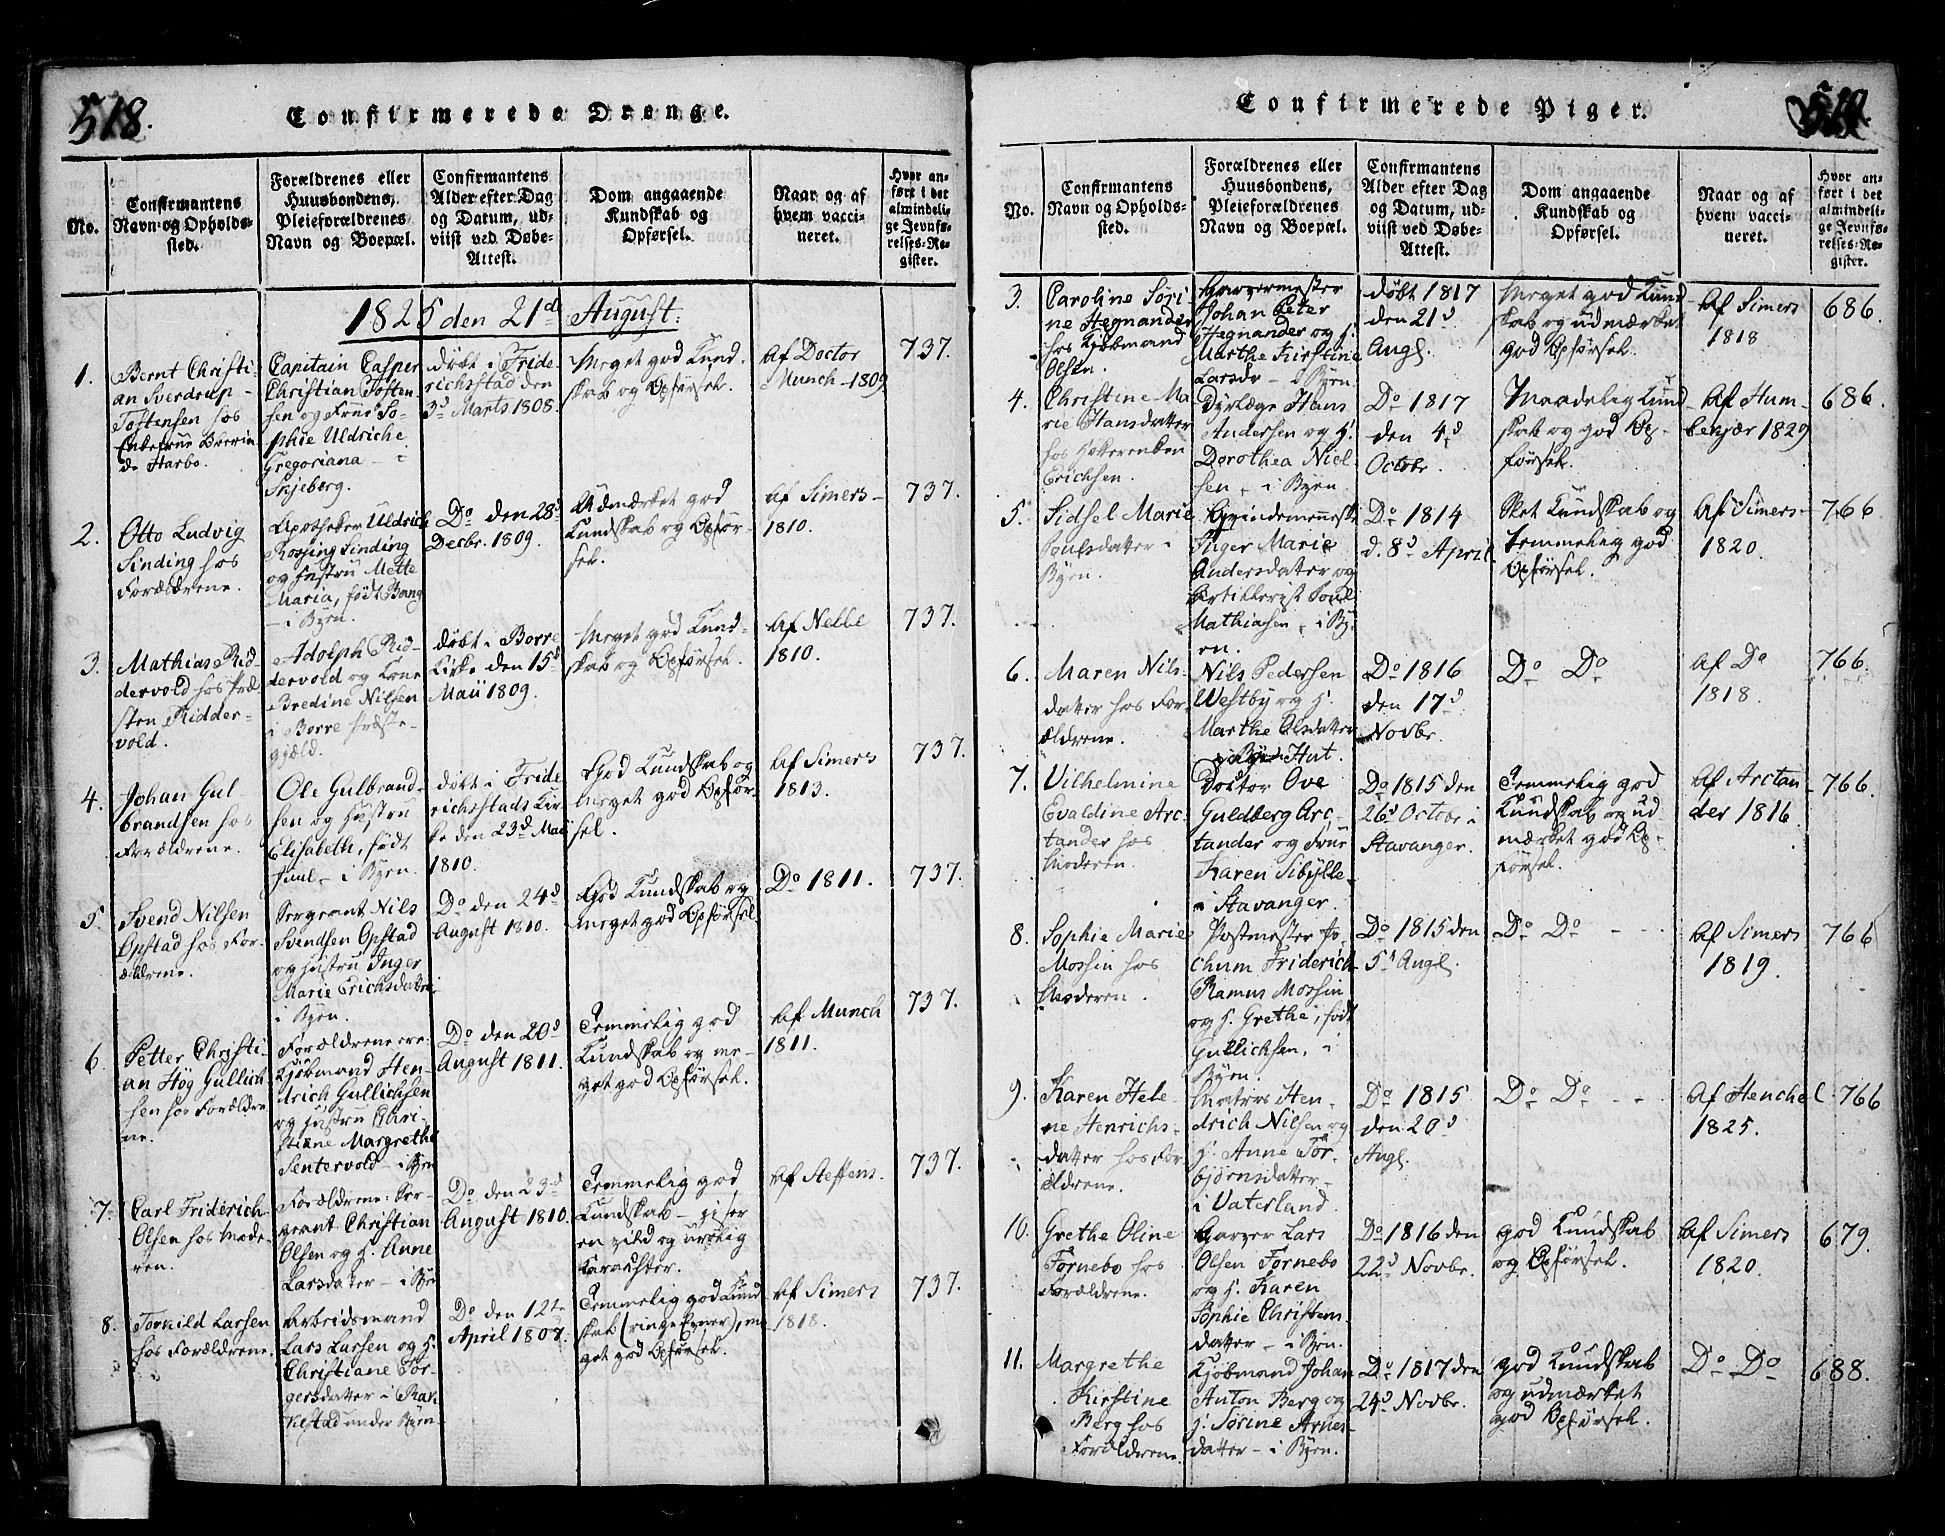 518.
Confirmerede Drenge.
No.
Confirmantens
Navn og Opholds-
sted.
Forældrenes eller
Huusbondens,
Pleieforældrenes
Navn og Boepæl.
Confirmantens
Alder efter Dag
og Datum, ud-
viist ved Døbe-
Attest.
Dom angaaende
Kundskab og
Opførsel.
Naar og af
hvem vacci-
neret.
Hvor an-
ført i det
almindeli-
ge Jevnfø-
relses-Re-
gister.
1825 den 21de August:
1.
Bernt Christi-
an Sverdrup
Tostensen hos
Enkefrue Beerin
de Harbo.
Capitain Casper
Christian Tosten-
sen og Frue So-
phie Uldriche
Gregoriana - i
Skjeberg.
døbt i Fride
richsstad den
3d Marts 1808.
Meget god Kund-
skab og Opførsel.
Af Doctor
Munch - 1809
737.
2.
Otto Ludvig
Sinding hos
Forældrene.
Apotheker Uldrich
Rosing Sinding
og Hustru Mette
Maria, født Bang
- i Byen.
Do den 28d
Decbr. 1809.
Udmærket god
Kundskab og Opfør-
sel.
Af Simers -
1810.
737.
3.
Mathias Rid-
dervold hos Præ-
sten Ridder-
vold.
Adolph Rid-
dervold og Kone
Bredine Nilsen
i Borre Præste-
gjæld.
døbt i Borre
Kirke den 15d
Maii 1809.
Meget god Kund-
skab og Opførsel.
Af Nelle
1810.
737.
4.
Johan Gul-
brandsen hos
Forældrene.
Ole Gulbrand-
sen og Hustru
Elisabeth, født
Juul - i Byen.
døbt i Fride
richsstads Kir
ke den 23d Maii
1810.
God Kundskab og
meget god Opfør-
sel.
Af Simers
1813.
737.
5
Svend Nilsen
Opstad hos For-
ældrene.
Sergeant Nils
Svendsen Opstad
og Hustru Inger
Marie Erichsdatter
i Byen.
Do den 24d
August 1810.
God Kundskab og
meget god Opførsel.
Do 1811.
737.
6.
Petter Christi-
an Høg Gullich
sen hos Forældre
ne.
Forældrene ere:
Kjøbmand Hen-
drich Gullichsen
og Hustru Chri-
stine Margrethe
Sentervold - i Byen
Do den 20d
August 1811.
Temmelig god
Kundskab og me-
get god Opførsel.
Af Munch
1811.
737.
7.
Carl Friderich
Olsen hos Mode-
ren.
Forældrene: Ser-
geant Christian
Olsen og H. Anne
Larsdatter - i Byen
Do den 23d
August 1810.
Temmelig god
Kundskab -
en og
Karachter.
Af Steffens.
737.
8.
Torkild Larsen
hos Forældrene.
Arbeidsmand
Lars Larsen og H.
Christiane Tor-
gersdatter i
under Byen.
Do den 12te
April 1807.
Temmelig god Kund
skab (ringe Evner), me
get god Opførsel.
Af Simers
1818.
737.
Confirmerede Piger.
No.
Confirmantens
Navn og Opholds-
sted.
Forældrenes eller
Huusbondens,
Pleieforældrenes
Navn og Boepæl.
Confirmantens
Alder efter Dag
og Datum, ud-
viist ved Døbe-
Attest.
Dom angaaende
Kundskab og
Opførsel.
Naar og af
hvem vacci-
neret.
Hvor an-
ført i det
almindeli-
ge Jevnfø-
relses-Re-
gister.
3.
Caroline Søri-
ne Hegnander
hos Kjøbmand
Olsen.
Garvermester
Johan Peter
Hegnander og H.
Marthe Kirstine
Larsdr - i Byen.
døbt 1817
den 21d
Augl.
Meget god Kund
skab og udmærket
god Opførsel.
Af Simers
1818
686.
4.
Christine Ma
rie Hansdatter
hos
Erichsen.
Dyrlæge Hans
Andersen og H.
Dorothea Niel
sen - i Byen.
Do 1817
den 4d
Octobr.
Maadelig Kund
skab og god Op-
førsel.
Af Hum-
bekjær 1829
686.
5.
Sidsel Marie
Poulsdatter i
Byen.
Qvindemenneske
Inger Marie
Andersdatter og
Artillerist Poul
Mathiasen - i By-
en.
Do 1814
d. 8d April.
Slet Kundskab og
temmelig god
Opførsel.
Af Simers
1820.
766
6.
Maren Nils-
datter hos For-
ældrene.
Nils Pedersen
Westby og H.
Marthe Olsdatter
i Byen Hut.
Do 1816
den 17d
Novbr.
Do Do
Af Do
1818.
766.
7.
Vilhelmine
Evaldine Arc-
tander hos
Moderen.
Doktor Ove
Guldberg Arc-
tander og Frue
Karen Sibylle -
i Stavanger.
Do 1815 den
26d Octobr i
Stavanger.
Temmelig god
Kundskab og ud
mærket god Op-
førsel.
Af Arctan-
der 1816.
766.
8.
Sophie Marie
Mossin hos
Moderen.
Postmester Jo-
chum Friderich
Ramus Mossin
og H. Grethe, født
Gullichsen, i
Byen.
Do 1815 den
5d Augl.
Do Do - -
Af Simers
1819.
766
9.
Karen Hele
ne Henrichs-
datter hos For-
ældrene.
Matros Hen-
drich Nilsen og
H. Anne Tor-
bjørnsdatter -
i Vaterland.
Do 1815
den 20d
Augl.
Do Do - -
Af Henchel
1825.
766
10.
Grethe Oline
Tornebo hos
Forældrene.
Garver Lars
Olsen Tornebo
og H. Karen
Sophie Christens
datter - i Byen.
Do 1816 den
22d Novbr.
god Kundskab
og Opførsel.
Af Simers
1820.
679.
11.
Margrethe
Kirstine
Berg hos
Forældrene.
Kjøbmand Johan
Anton Berg og
H. Sørine Arnes-
datter - i Byen.
Do 1817 den
24d Novbr.
god Kundskab
og udmærket
god Opførsel.
Do Do
688.